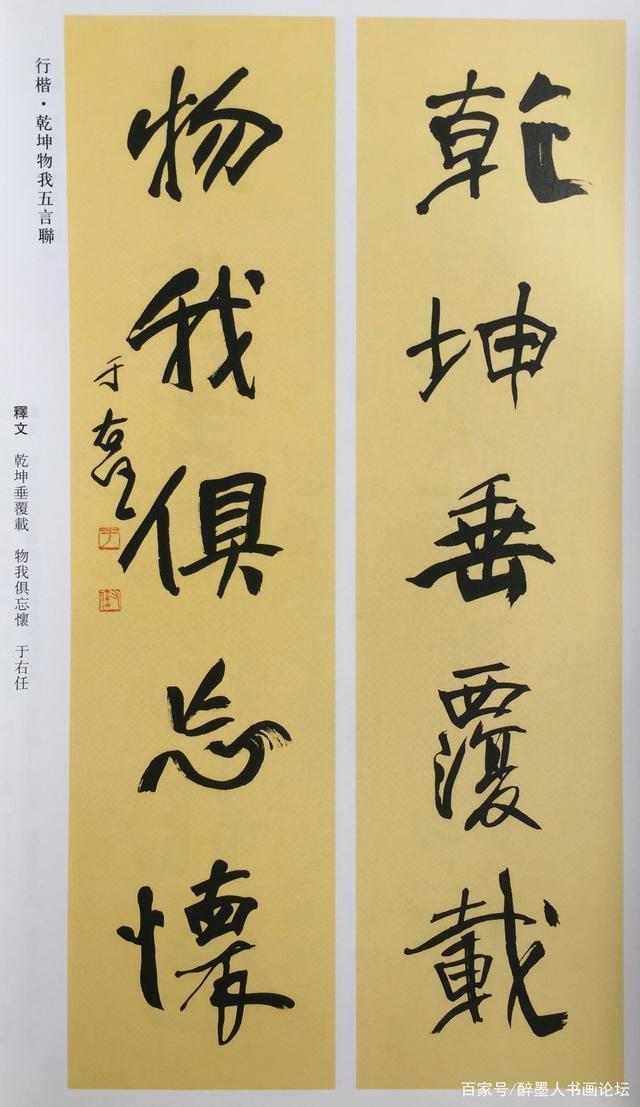 乾坤垂覆載
物我俱忘懷
于右任
行楷·乾坤物我五言聯
釋文 乾坤垂覆載 物我俱忘懷 于右任
百家号/醉墨人书画论坛